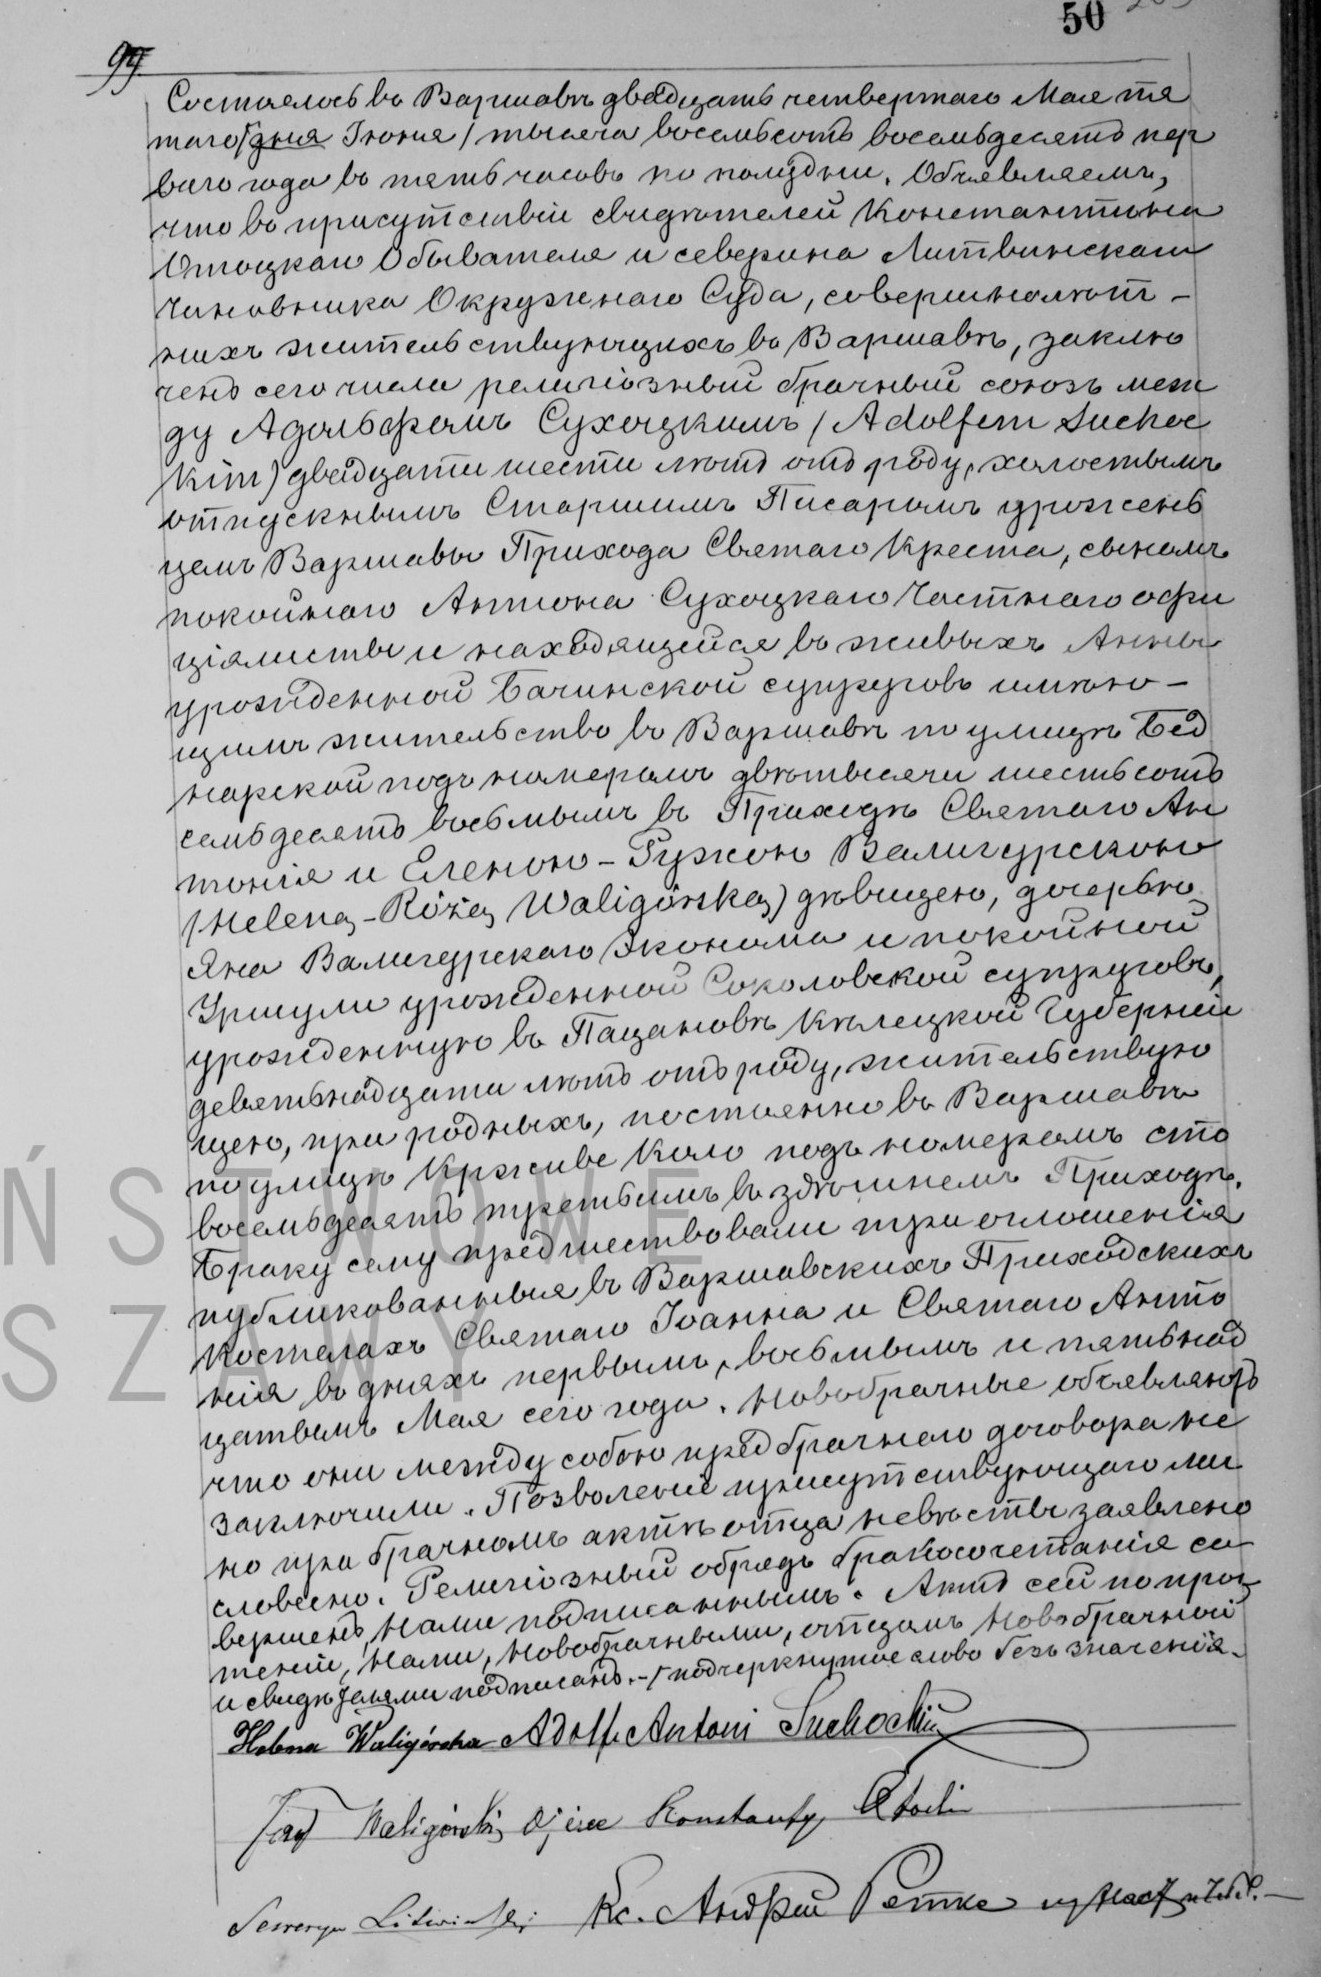 50
99
Состоялось въ Варшавѣ двадцать четвертаго Мая пя
таго /дня Іюня/ тысяча восемьсотъ восемьдесятъ пер
ваго года въ пять часовъ по полудни. Объявляемъ,
что въ присутствіи свидѣтелей Константина
Отоцкаго Обывателя и Северина Литвинскаго
Чиновника Окружнаго Суда, совершеннолѣт-
нихъ жительствующихъ въ Варшавѣ, заклю
ченъ сего числа религіозный брачный союзъ меж
ду Адольфомъ Сухоцкимъ /Adolfem Suchoc
kim) двадцати шести лѣтъ отъ роду, холостымъ
отпускнымъ Старшимъ Писаромъ уроженъ
цемъ Варшавы Прихода Святаго Креста, сыномъ
покойнаго Антона Сухоцкаго Частнаго офи
ціялисты и находящейся въ живыхъ Анны
урожденной Бачинской супруговъ имѣю-
щимъ жительство въ Варшавѣ по улицѣ Бед
нарской подъ номеромъ двѣтысячи шестьсотъ
семьдесятъ восьмымъ въ Приходѣ Святаго Ан
тонія и Еленою-Ружою Валигурскою
/Heleną-Różą Waligórską) дѣвицею, дочерью
Яна Валигурскаго Эконома и покойной
Уршули урожденной Соколовской супруговъ,
урожденную въ Пацановѣ Кѣлецкой Губерніи
девятьнадцати лѣтъ отъ роду, жительствую
щею, при родныхъ, постоянно въ Варшавѣ
по улицѣ Крживе Коло подъ номеромъ сто
восемьдесятъ третьимъ въ здѣшнемъ Приходѣ.
Браку сему предшествовали три оглошенія
публикованныя въ Варшавскихъ Приходскихъ
Костелахъ Святаго Іоанна и Святаго Анто
нія въ дняхъ первымъ, восьмымъ и пятьнад
цатымъ Мая сего года. Новобрачные объявляютъ
что они между собою предбрачнаго договора не
заключили. Позволеніе присутствующаго лич
но при брачномъ актѣ отца невѣсты заявлено
словесно. Религіозный обрядъ бракосочетанія со
вершенъ, нами подписаннымъ. Актъ сей по проч
теніи, нами, новобрачными, отцемъ новобрачной
и свидѣтелями подписанъ. -/подчеркнутое слово безъ значенія-
Helena Waligórska Adolf Antoni Suchocki
Jan Waligórski Ojciec Konstanty Otocki
Seweryn Litwiński Кс. Андрей Ретке
ŃSTWOWE
SZAWY